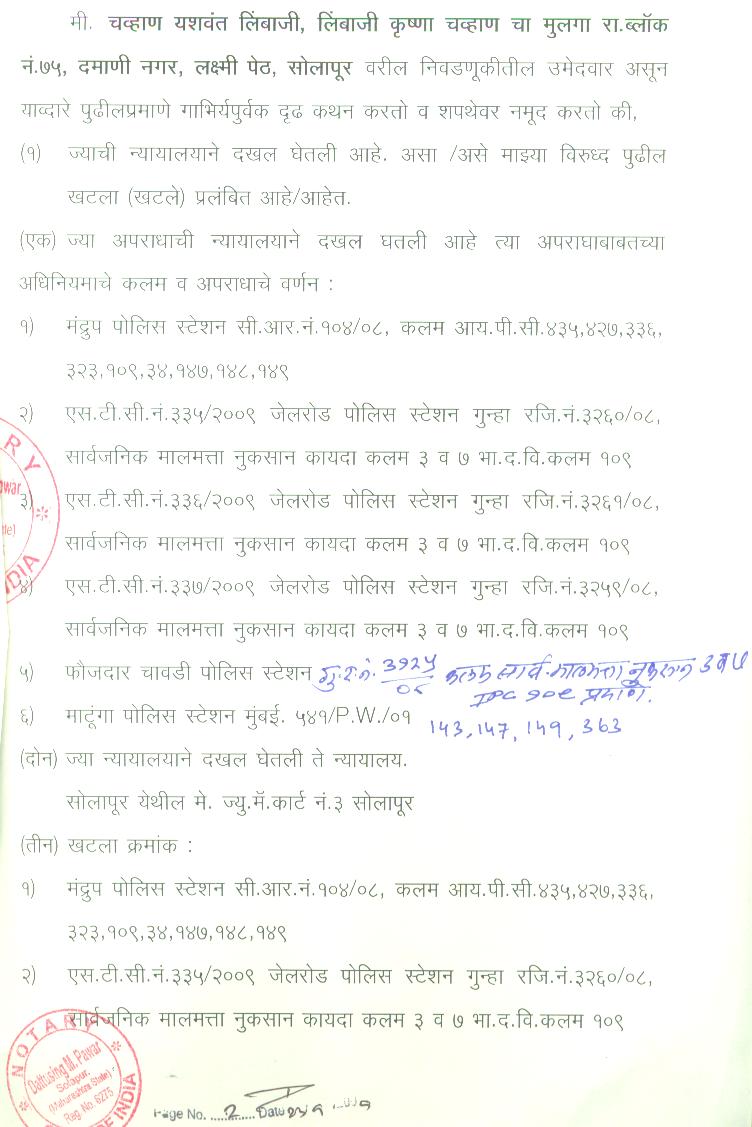 मी. चव्हाण यशवंत लिंबाजी, लिंबाजी कृष्णा चव्हाण चा मुलगा रा.ब्लॉक
नं.७५, दमाणी नगर, लक्ष्मी पेठ, सोलापूर वरील निवडणूकीतील उमेदवार असून
याव्दारे पुढीलप्रमाणे गाभिर्यपुर्वक दृढ कथन करतो व शपथेवर नमूद करतो की,
(१) ज्याची न्यायालयाने दखल घेतली आहे. असा /असे माझ्या विरुध्द पुढील
खटला (खटले) प्रलंबित आहे/आहेत.
(एक) ज्या अपराधाची न्यायालयाने दखल घतली आहे त्या अपराघाबाबतच्या
अधिनियमाचे कलम व अपराधाचे वर्णन :
१) मंद्रुप पोलिस स्टेशन सी.आर.नं.१०४/०८, कलम आय.पी.सी.४३५,४२७,३३६,
३२३,१०९,३४,१४७,१४८,१४९
२) एस.टी.सी.नं.३३५/२००९ जेलरोड पोलिस स्टेशन गुन्हा रजि.नं.३२६०/०८,
सार्वजनिक मालमत्ता नुकसान कायदा कलम ३ व ७ भा.द.वि.कलम १०९
३) एस.टी.सी.नं.३३६/२००९ जेलरोड पोलिस स्टेशन गुन्हा रजि.नं.३२६१/०८,
सार्वजनिक मालमत्ता नुकसान कायदा कलम ३ व ७ भा.द.वि.कलम १०९
४) एस.टी.सी.नं.३३७/२००९ जेलरोड पोलिस स्टेशन गुन्हा रजि.नं.३२५९/०८,
सार्वजनिक मालमत्ता नुकसान कायदा कलम ३ व ७ भा.द.वि.कलम १०९
५) फौजदार चावडी पोलिस स्टेशन गु.र.नं. कलम सार्व. मालमत्ता नुकसान ३ व ७
IPC १०९ प्रमाणे.
६) माटूंगा पोलिस स्टेशन मुंबई. ५४१/P.W./०१ 143,147, 149, 363
(दोन) ज्या न्यायालयाने दखल घेतली ते न्यायालय.
सोलापूर येथील मे. ज्यु.मॅ.कार्ट नं.३ सोलापूर
(तीन) खटला क्रमांक :
१) मंद्रुप पोलिस स्टेशन सी.आर.नं.१०४/०८, कलम आय.पी.सी.४३५,४२७,३३६,
३२३,१०९,३४,१४७,१४८,१४९
२) एस.टी.सी.नं.३३५/२००९ जेलरोड पोलिस स्टेशन गुन्हा रजि.नं.३२६०/०८,
सार्वजनिक मालमत्ता नुकसान कायदा कलम ३ व ७ भा.द.वि.कलम १०९
NOTARY
Dattusing M. Pawar
Solapur.
(Maharashtra State)
Reg. No. 6275
INDIA
Page No. 2